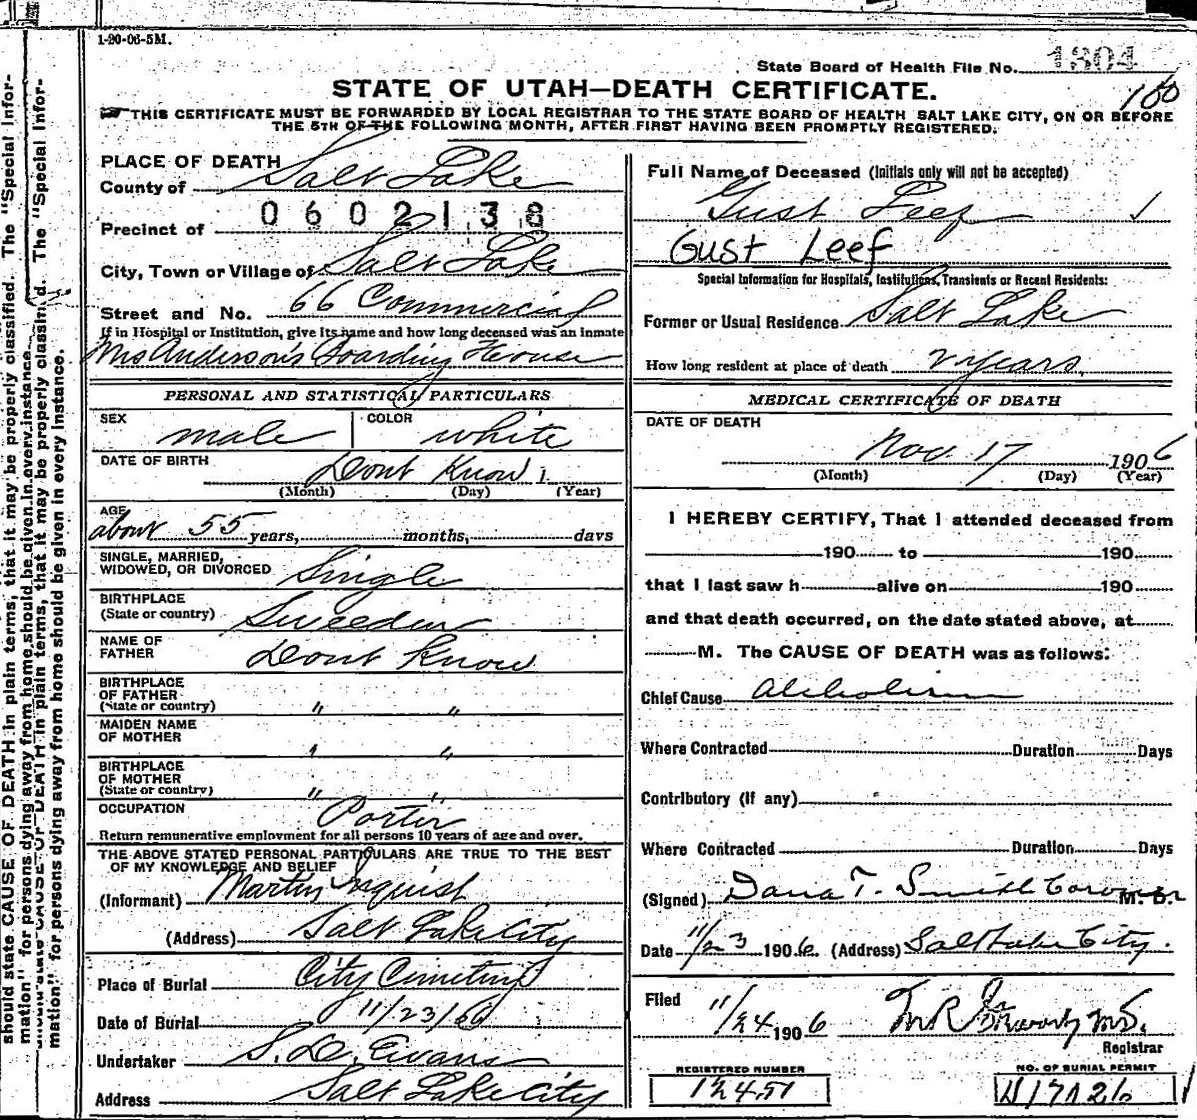 1-20-06-5M.
State Board of Health File No. 1804
160
STATE OF UTAH—DEATH CERTIFICATE.
THIS CERTIFICATE MUST BE FORWARDED BY LOCAL REGISTRAR TO THE STATE BOARD OF HEALTH SALT LAKE CITY, ON OR BEFORE
THE 5TH OF THE FOLLOWING MONTH, AFTER FIRST HAVING BEEN PROMPTLY REGISTERED.
PLACE OF DEATH
County of Salt Lake
0602138
Precinct of
City, Town or Village of Salt Lake
Street and No. 66 Commercial
If in Hospital or Institution, give its name and how long deceased was an inmate
Mrs Anderson's Boarding House
PERSONAL AND STATISTICAL PARTICULARS
SEX male COLOR white
DATE OF BIRTH Dont Know
(Month) (Day) (Year)
AGE
about 55 years, months, days
SINGLE, MARRIED,
WIDOWED, OR DIVORCED Single
BIRTHPLACE
(State or country) Sweeden
NAME OF
FATHER Dont Know
BIRTHPLACE
OF FATHER
(State or country) " "
MAIDEN NAME
OF MOTHER " "
BIRTHPLACE
OF MOTHER
(State or country) " "
OCCUPATION Porter
Return remunerative employment for all persons 10 years of age and over.
THE ABOVE STATED PERSONAL PARTICULARS ARE TRUE TO THE BEST
OF MY KNOWLEDGE AND BELIEF
(Informant) Martin Inquist
(Address) Salt Lake City
Place of Burial City Cemetery
Date of Burial 11/23/06
Undertaker S. D. Evans
Address Salt Lake City
Full Name of Deceased (Initials only will not be accepted)
Gust Leef
Gust Leef
Special Information for Hospitals, Institutions, Transients or Recent Residents:
Former or Usual Residence Salt Lake
How long resident at place of death 2 years.
MEDICAL CERTIFICATE OF DEATH
DATE OF DEATH
Nov. 17 1906
(Month) (Day) (Year)
I HEREBY CERTIFY, That I attended deceased from
190 to 190
that I last saw h alive on 190
and that death occurred, on the date stated above, at
M. The CAUSE OF DEATH was as follows:
Chief Cause Alcholism
Where Contracted Duration Days
Contributory (if any)
Where Contracted Duration Days
(Signed) Dana T. Smith Coroner M. D.
Date 11/23 1906. (Address) Salt Lake City.
Filed 11/24 1906
Registrar
REGISTERED NUMBER
12451
NO. OF BURIAL PERMIT
H17126
should state CAUSE OF DEATH in plain terms, that it may be properly classified. The "Special Infor-
mation" for persons dying away from home should be given in every instance.
should state CAUSE OF DEATH in plain terms, that it may be properly classified. The "Special Infor-
mation" for persons dying away from home should be given in every instance.